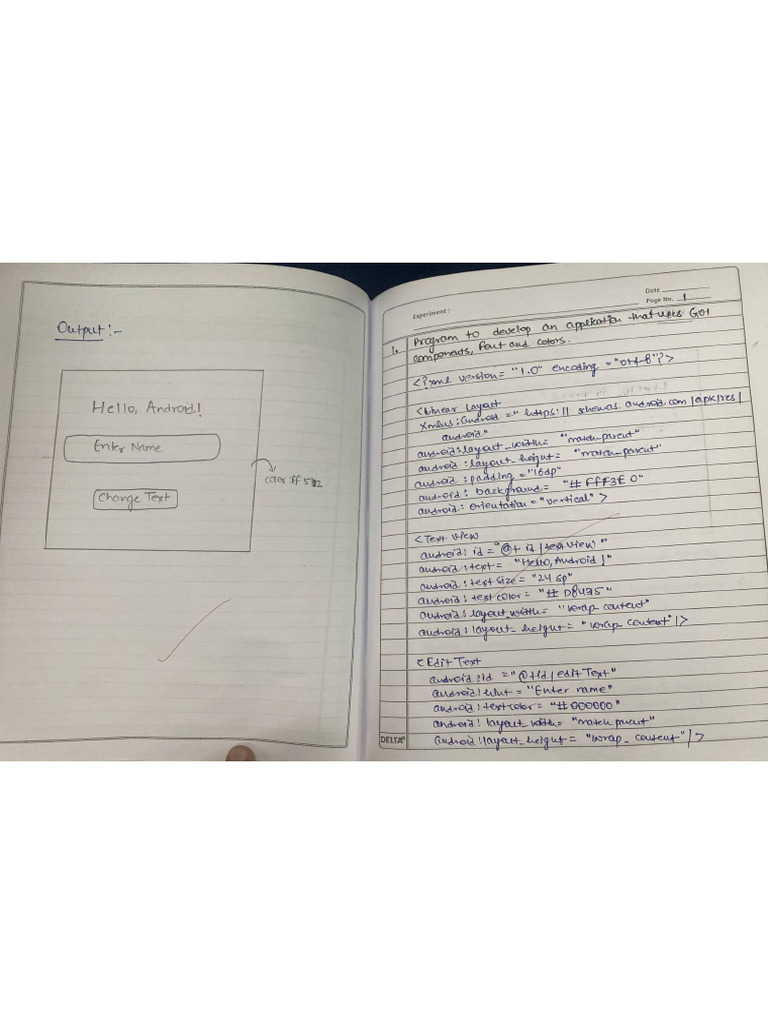 Output :-
Hello, Android!
Enter Name
Change Text
Experiment :
Date
Page No. 1
1. Program to develop an application that uses GUI
components, Font and colors.
<?xml version = "1.0" encoding = "utf-8"?>
<Linear Layout
xmlns:Android = "https://schemas.android.com/apk/res/
android"
android:layout_width= "match-parent"
android:layout_height= "match-parent"
android:padding = "16dp"
android: background= "#FFF3E0"
android: orientation = "vertical" >
<Text View
android: id = "@+id/textView"
android: text = "Hello, Android!"
android: text size = "24 sp"
android: text color = "#D8435"
android: layout_width= "wrap-content"
android: layout_height = "wrap-content"/>
<Edit Text
android: id = "@+id/edit Text"
android: hint = "Enter name"
android: text color = "#000000"
android: layout_width= "match parent"
android:layout_height = "wrap_content"/>
DELTA